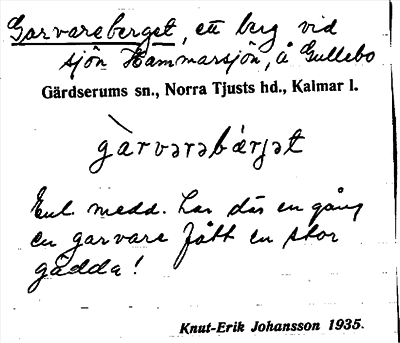 Garvareberget, ett berg vid
sjön Hammarsjön, å Gullebo
Gärdserums sn., Norra Tjusts hd., Kalmar l.
gàrvərəbærjət
Enl. medd. har där en gång
en garvare fått en stor
gädda!
Knut-Erik Johansson 1935.